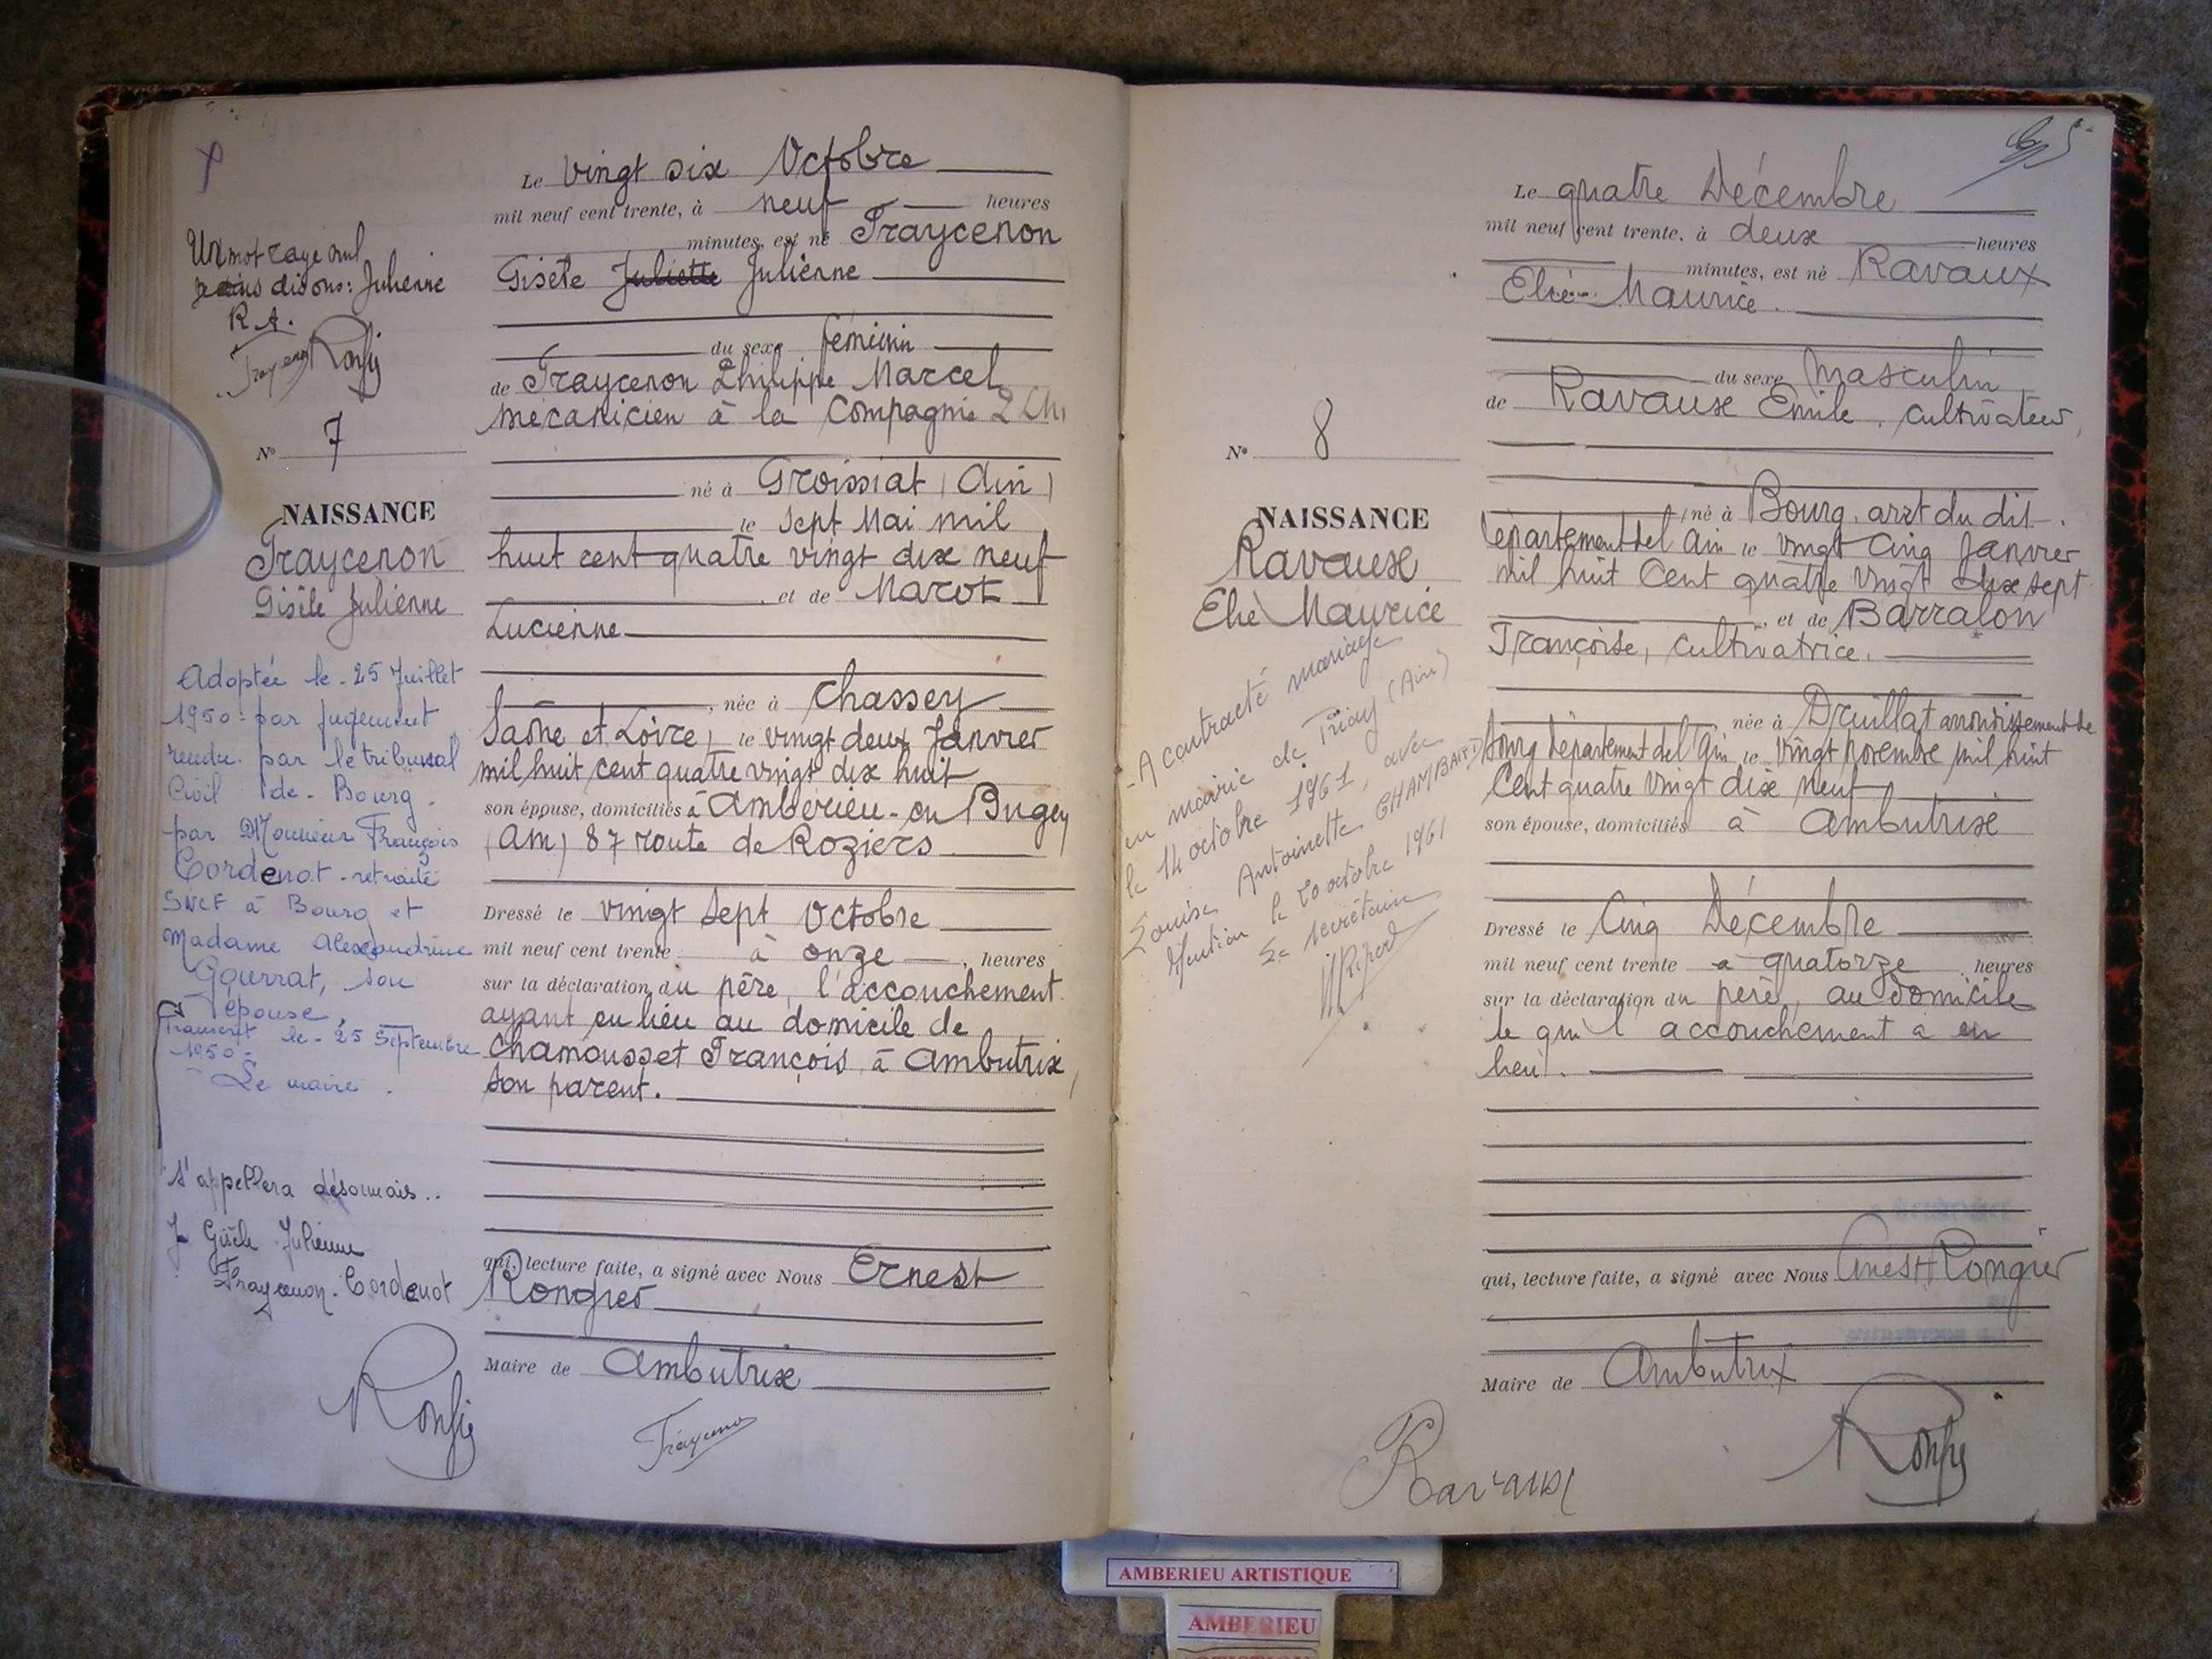 Un mot rayé nul
disons: Julienne
R.A.
N° 7
NAISSANCE
Fraycenon
Gisèle Julienne
Adoptée le 25 Juillet
1950 par jugement
rendu par le tribunal
Civil de Bourg
par Monsieur François
Cordenot retraité
SNCF à Bourg et
Madame Alexandrine
Gourrat, son
épouse,
Transcrit le 25 Septembre
1950
Le maire.
S'appellera désormais..
Gisèle Julienne
Fraycenon-Cordenot
Le vingt six Octobre
mil neuf cent trente, à neuf heures
minutes, est né Fraycenon
Gisèle Juliette Julienne
du sexe féminin
de Fraycenon Philippe Marcel
mécanicien à la Compagnie
né à Groissiat (Ain)
le sept Mai mil
huit cent quatre vingt dix neuf
et de Marot
Lucienne
, née à Chassey
Saône et Loire, le vingt deux Janvier
mil huit cent quatre vingt dix huit
son épouse, domiciliés à Ambérieu-en Bugey
(Ain) 87 route de Roziers
Dressé le vingt sept Octobre
mil neuf cent trente à onze , heures
sur la déclaration du père, l'accouchement
ayant eu lieu au domicile de
Chamousset François à Ambutrix,
son parent.
qui, lecture faite, a signé avec Nous Ernest
Rongier
Maire de Ambutrix
N° 8
NAISSANCE
Ravaux
Elie Maurice
- A contracté mariage
en mairie de Priay (Ain)
le 14 octobre 1961, avec
Louise Antoinette CHAMBARD
Mention le 20 octobre 1961
Le secrétaire
Le quatre Décembre
mil neuf cent trente, à deux heures
minutes, est né Ravaux
Elie Maurice.
du sexe Masculin
de Ravaux Emile, cultivateur,
né à Bourg, arrt du dit.
département de l'Ain le vingt Cinq Janvier
mil huit Cent quatre Vingt dix sept
, et de Barralon
Françoise, cultivatrice.
, née à Druillat arrondissement de
Bourg département de l'Ain le vingt novembre mil huit
Cent quatre Vingt dix neuf
son épouse, domiciliés à Ambutrix
Dressé le Cinq Décembre
mil neuf cent trente à quatorze heures
sur la déclaration du père, au domicile
le qu'l accouchement a eu
lieu.
qui, lecture faite, a signé avec Nous Ernest Rongier
Maire de Ambutrix
Ravaux
AMBERIEU ARTISTIQUE
AMBERIEU
ARTISTIQUE